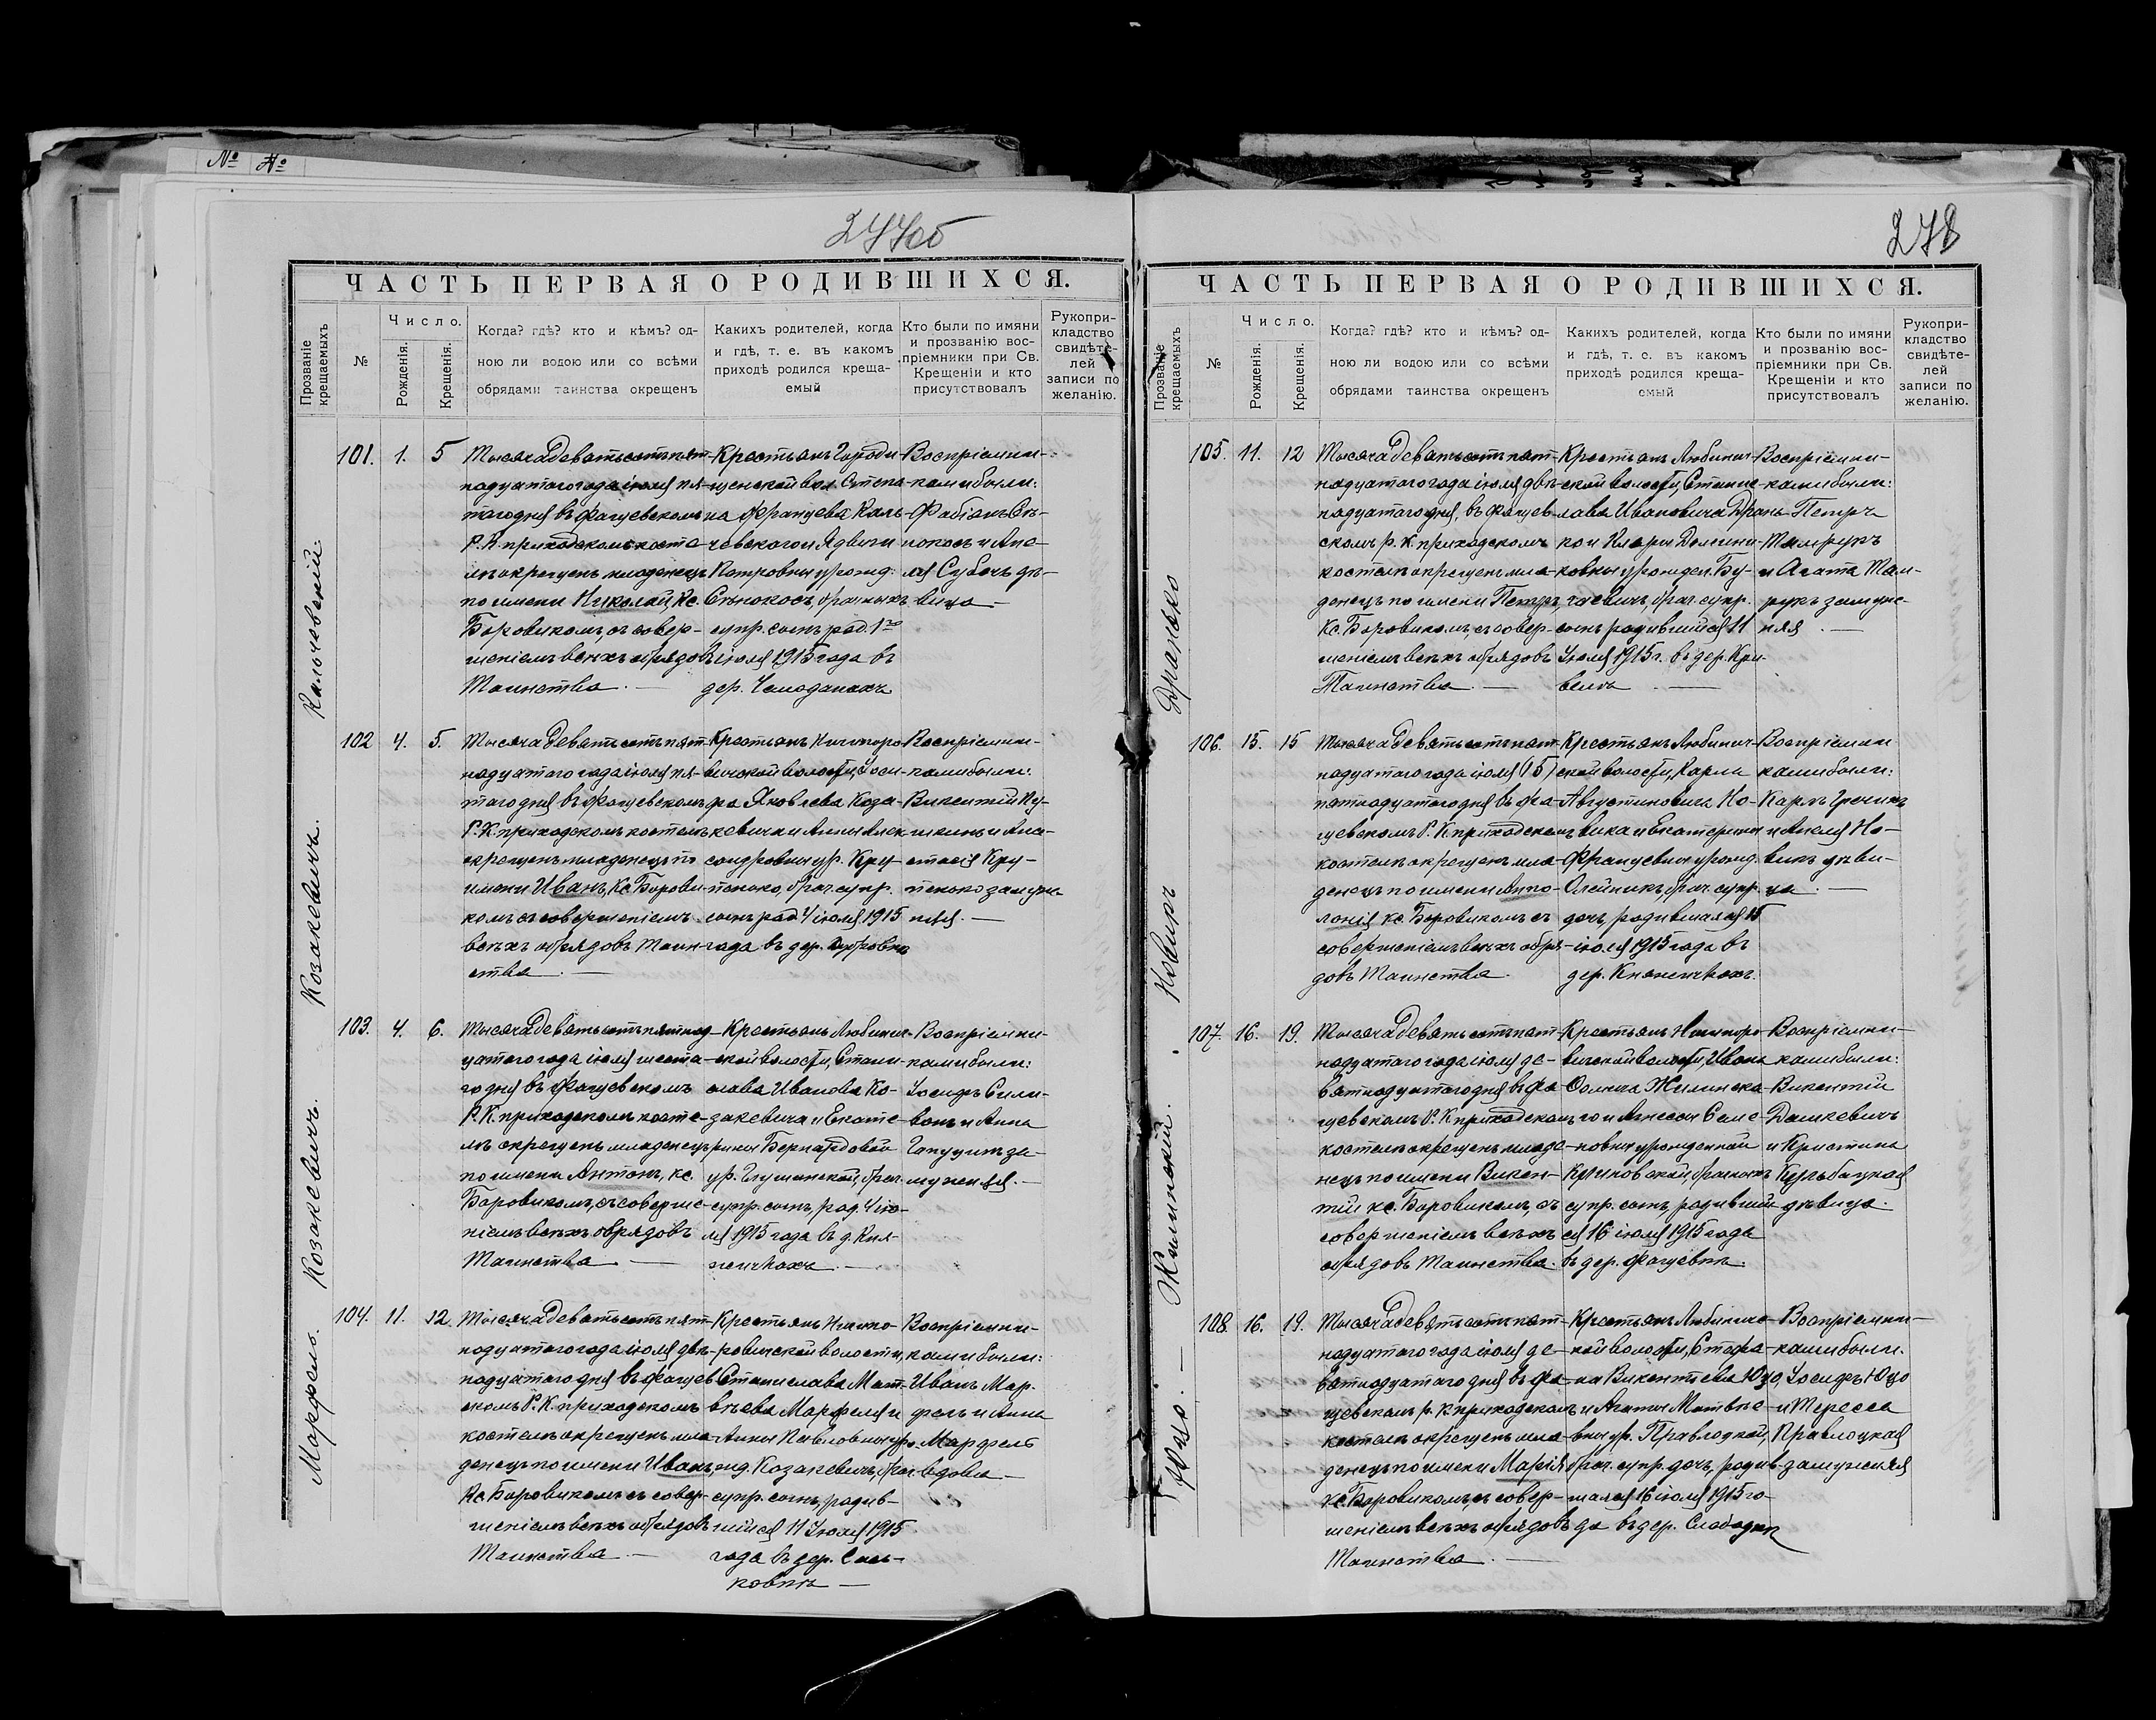 № №
277об
ЧАСТЬ ПЕРВАЯ О РОДИВШИХСЯ.
Прозваніе крещаемыхъ
№
Число.
Рожденія.
Крещенія.
Когда? гдѣ? кто и кѣмъ? од-
ною ли водою или со всѣми
обрядами таинства окрещенъ
Какихъ родителей, когда
и гдѣ, т. е. въ какомъ
приходѣ родился креща-
емый
Кто были по имяни
и прозванію вос-
пріемники при Св.
Крещеніи и кто
присутствовалъ
Рукопри-
кладство
свидѣте-
лей
записи по
желанію.
Кальчевскій.
101. 1. 5
Тысяча девятьсотъ пят-
надцатого года іюля пя-
таго дня въ Фащевскомъ
Р. К. приходскомъ косте-
лѣ окрещенъ младенецъ
по имени Николай, Кс.
Боровикомъ, съ совер-
шеніемъ всѣхъ обрядовъ
Таинства. —
Крестьянъ Городи-
щенской вол. Степа-
на Францева Каль-
чевского и Ядвиги
Петровны урожд.
Сѣнокосъ, брачныхъ
супр. сынъ род. 1го
іюля 1915 года въ
дер. Чемоданахъ
Воспріемни-
ками были:
Фабіанъ Сѣ-
нокосъ и Ане-
ля Субочъ дѣ-
вица —
Козакевичъ.
102 4. 5.
Тысяча девятьсотъ пят-
надцатого года іюля пя-
таго дня въ Фащевскомъ
Р. К. приходскомъ костелѣ
окрещенъ младенецъ по
имени Иванъ, Кс. Борови-
комъ съ совершеніемъ
всѣхъ обрядовъ Таин-
ства. —
Крестьянъ Ничипоро-
вичской волости, Іоси-
фа Яковлева Коза-
кевича и Анны Алек-
сандровны ур. Кру-
пенько, брач. супр.
сынъ род 4 іюля 1915
года въ дер. Дубровкѣ
Воспріемни-
ками были:
Викентій Ку-
и Ана-
стасія Кру-
пенько замуж-
няя. —
Козакевичъ.
103. 4. 6.
Тысяча девятьсотъ пятнад-
цатого года іюля шеста-
го дня въ Фащевскомъ
Р. К. приходскомъ косте-
лѣ окрещенъ младенецъ
по имени Антонъ, кс.
Боровикомъ, съ соверше-
ніемъ всѣхъ обрядовъ
Таинства —
Крестьянъ Любинич-
ской волости, Стани-
слава Иванова Ко-
закевича и Екате-
рины Бернардовой
ур. Глушинской, брач.
супр. сынъ, род. 4 ію-
ля 1915 года въ д. Кня-
жичкахъ. —
Воспріемни-
ками были:
Іосифъ Сели-
вонъ и Анна
за-
мужняя. —
Марфель.
104. 11. 12.
Тысяча девятьсотъ пят-
надцатого года іюля двѣ-
надцатого дня въ Фащев-
скомъ Р. К. приходскомъ
костелѣ окрещенъ мла-
денецъ по имени Иванъ,
Кс. Боровикомъ съ совер-
шеніемъ всѣхъ обрядовъ
Таинства —
Крестьянъ Ничипо-
ровичской волости,
Станислава Мат-
вѣева Марфеля и
Анны Павловны уро-
жд. Козакевичъ, брач.
супр. сынъ, родив-
шійся 11 Іюля 1915
года въ дер. Сань-
ковкѣ —
Воспріемни-
ками были:
Иванъ Мар-
фель и Анна
Марфель
вдова —
278
ЧАСТЬ ПЕРВАЯ О РОДИВШИХСЯ.
Прозваніе крещаемыхъ
№
Число.
Рожденія.
Крещенія.
Когда? гдѣ? кто и кѣмъ? од-
ною ли водою или со всѣми
обрядами таинства окрещенъ
Какихъ родителей, когда
и гдѣ, т. е. въ какомъ
приходѣ родился креща-
емый
Кто были по имяни
и прозванію вос-
пріемники при Св.
Крещеніи и кто
присутствовалъ
Рукопри-
кладство
свидѣте-
лей
записи по
желанію.
Дранько
105. 11. 12
Тысяча девятьсотъ пят-
надцатого года іюля двѣ-
надцатого дня, въ Фащев-
скомъ р. К. приходскомъ
костелѣ окрещенъ мла-
денецъ по имени Петръ,
Кс. Боровикомъ, съ совер-
шеніемъ всѣхъ обрядовъ
Таинства. —
Крестьянъ Любинич-
ской волости, Станис-
лава Ивановича Дрань-
ко и Клары Домини-
ковны урожден. Бу-
гаевичъ, брач. супр.
сынъ родившійся 11
Іюля 1915 г. въ дер. Кри-
вель —
Воспріемни-
ками были:
Петръ
и Агата
замуж-
няя. —
Новикъ
106. 15. 15
Тысяча девятьсотъ пят-
надцатого года іюля (15)
пятнадцатого дня въ Фа-
щевскомъ Р. К. приходскомъ
костелѣ окрещенъ мла-
денецъ по имени Апо-
лонія кс. Боровикомъ съ
совершеніемъ всѣхъ обря-
довъ Таинства.
Крестьянъ Любинич-
ской волости, Карла
Августиновича Но-
вика и Екатерины
Францевны урожд.
Олейникъ, брач. супр.
дочь, родившаяся 15
іюля 1915 года въ
дер. Княжичкахъ.
Воспріемни-
ками были:
Карлъ Гречихъ
и Анеля Но-
викъ дѣви-
ца. —
Жилинскій.
107. 16. 19.
Тысяча девятьсотъ пят-
надцатого года іюля де-
вятнадцатого дня въ Фа-
щевскомъ Р. К. приходскомъ
костелѣ окрещенъ младе-
нецъ по имени Викен-
тій кс. Боровикомъ, съ
совершеніемъ всѣхъ
обрядовъ Таинства.
Крестьянъ Ничипоро-
вичской волости, Ивана
Фомича Жилинска-
го и Агнессы Семе-
новны урожденной
брачныхъ
супр. сынъ, родивший-
ся 16 іюля 1915 года
въ дер. Фащевкѣ.
Воспріемни-
ками были:
Викентій
Дашкевичъ
и Кристина
Кульбицкая
дѣвица.
Юцо. —
108. 16. 19.
Тысяча девятьсотъ пят-
надцатого года іюля де-
вятнадцатого дня въ Фа-
щевскомъ р. К. приходскомъ
костелѣ окрещенъ мла-
денецъ по имени Марія
кс. Боровикомъ, съ совер-
шеніемъ всѣхъ обрядовъ
Таинства. —
Крестьянъ Любинич-
кой волости, Стефа-
на Викентьева Юцо,
и Агаты Матвѣе-
вны ур. Правлоцкой,
брач. супр. дочь, родив-
шаяся 16 іюля 1915 го-
да въ дер. Слободкѣ
Воспріемни-
ками были.
Іосифъ Юцо
и Тересса
Правлоцкая
замужняя